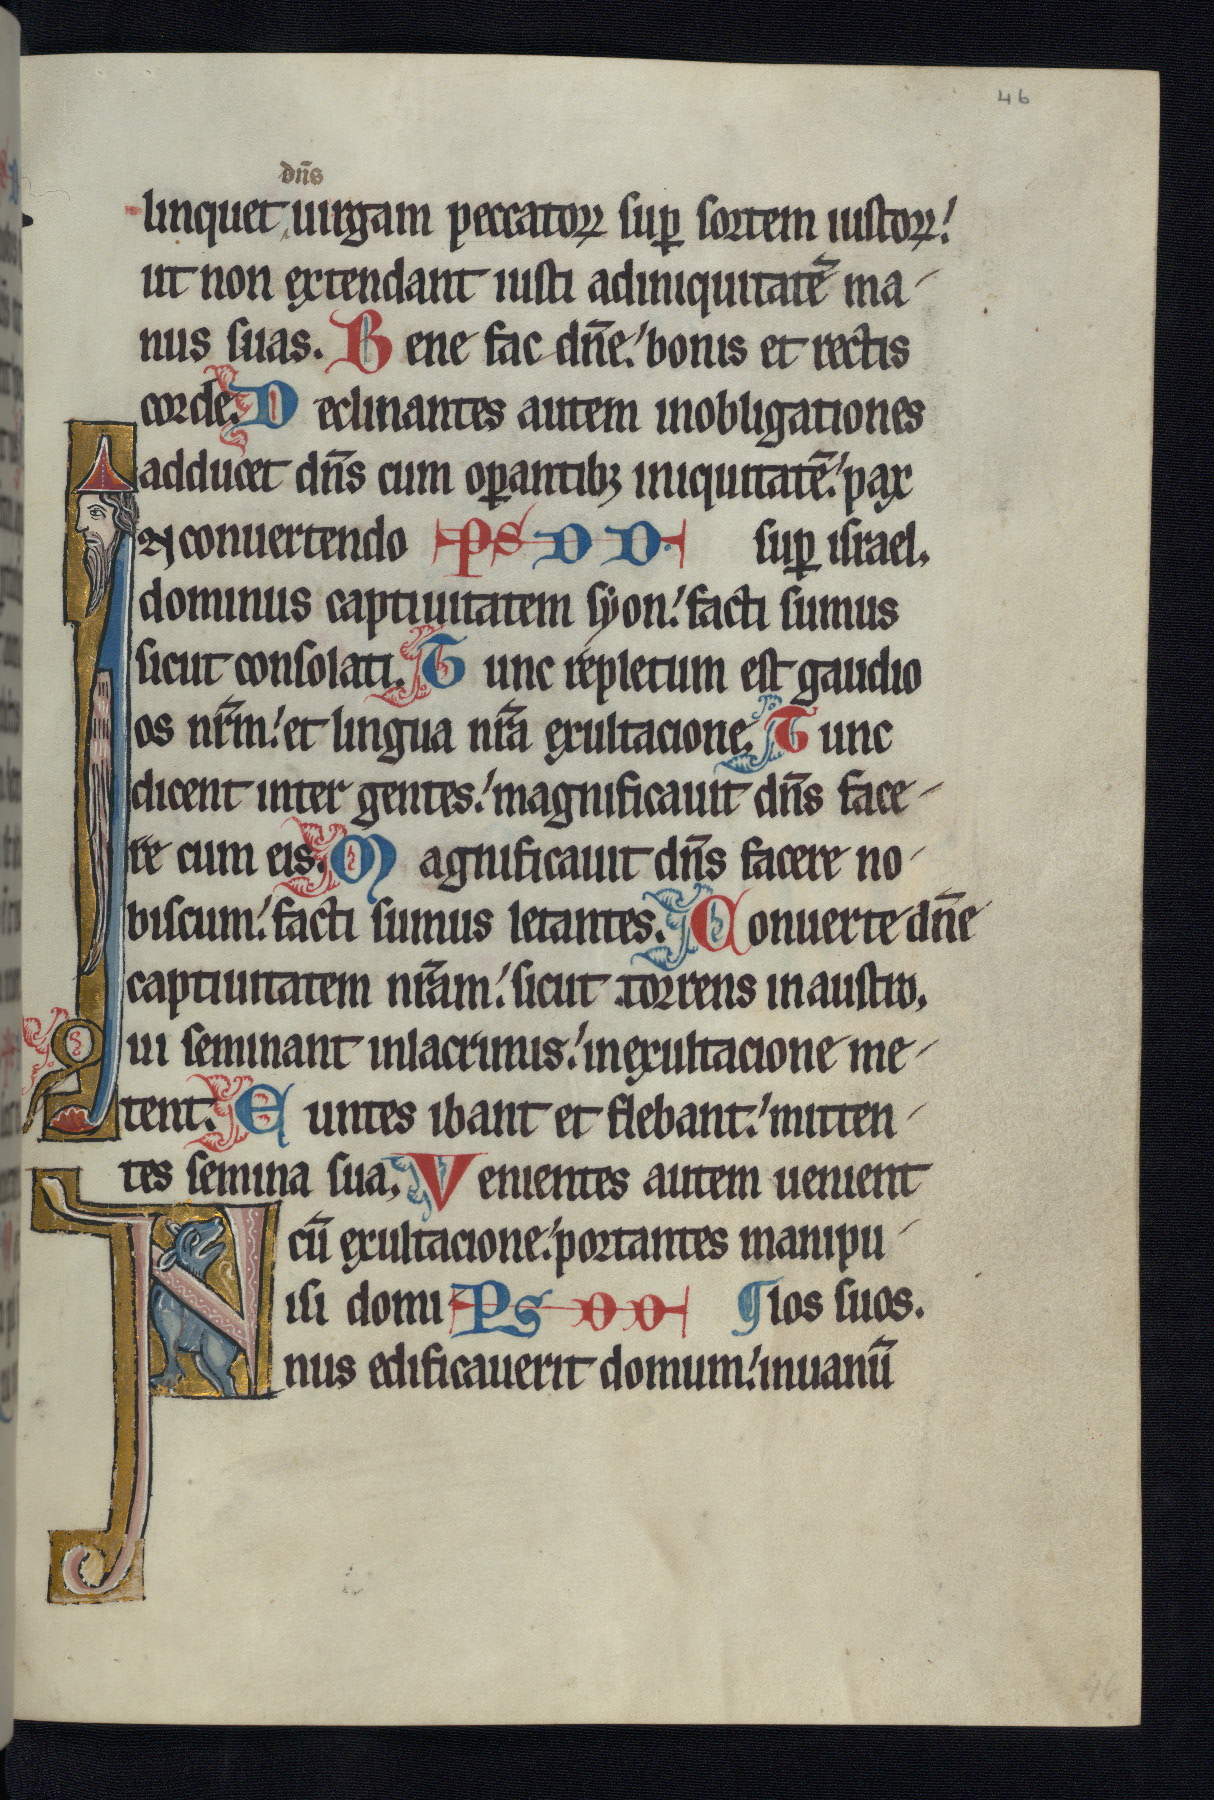 46
dn̄s
linquet uirgam peccatoꝝ suꝑ sortem iustoꝝ:
ut non extendant iusti adiniquitatē ma-
nus suas. Bene fac dn̄e: bonis et rectis
corde. Declinantes autem inobligationes
adducet dn̄s cum oꝑantibꝫ iniquitatē: pax
IN conuertendo PS DD. suꝑ israel.
dominus captiuitatem syon: facti sumus
sicut consolati. Tunc repletum est gaudio
os nr̄m: et lingua nr̄a exultacione. Tunc
dicent inter gentes: magnificauit dn̄s face-
re cum eis. Magnificauit dn̄s facere no-
biscum: facti sumus letantes. Conuerte dn̄e
captiuitatem nr̄am: sicut torrens in austro.
Qui seminant inlacrimis: inexultacione me-
tent. Euntes ibant et flebant: mitten-
tes semina sua. Venientes autem uenient
cū exultacione: portantes manipu-
Nisi domi PS DD los suos.
nus edificauerit domum: inuanū
46